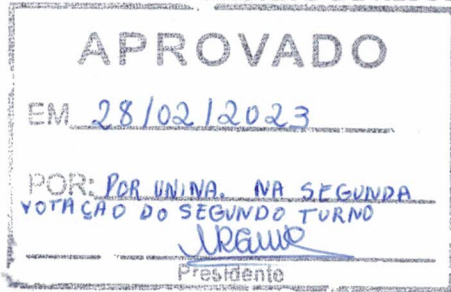 APROVADO
EM 28/02/2023
POR: POR UNINA. NA SEGUNDA
VOTAÇÃO DO SEGUNDO TURNO
Presidente